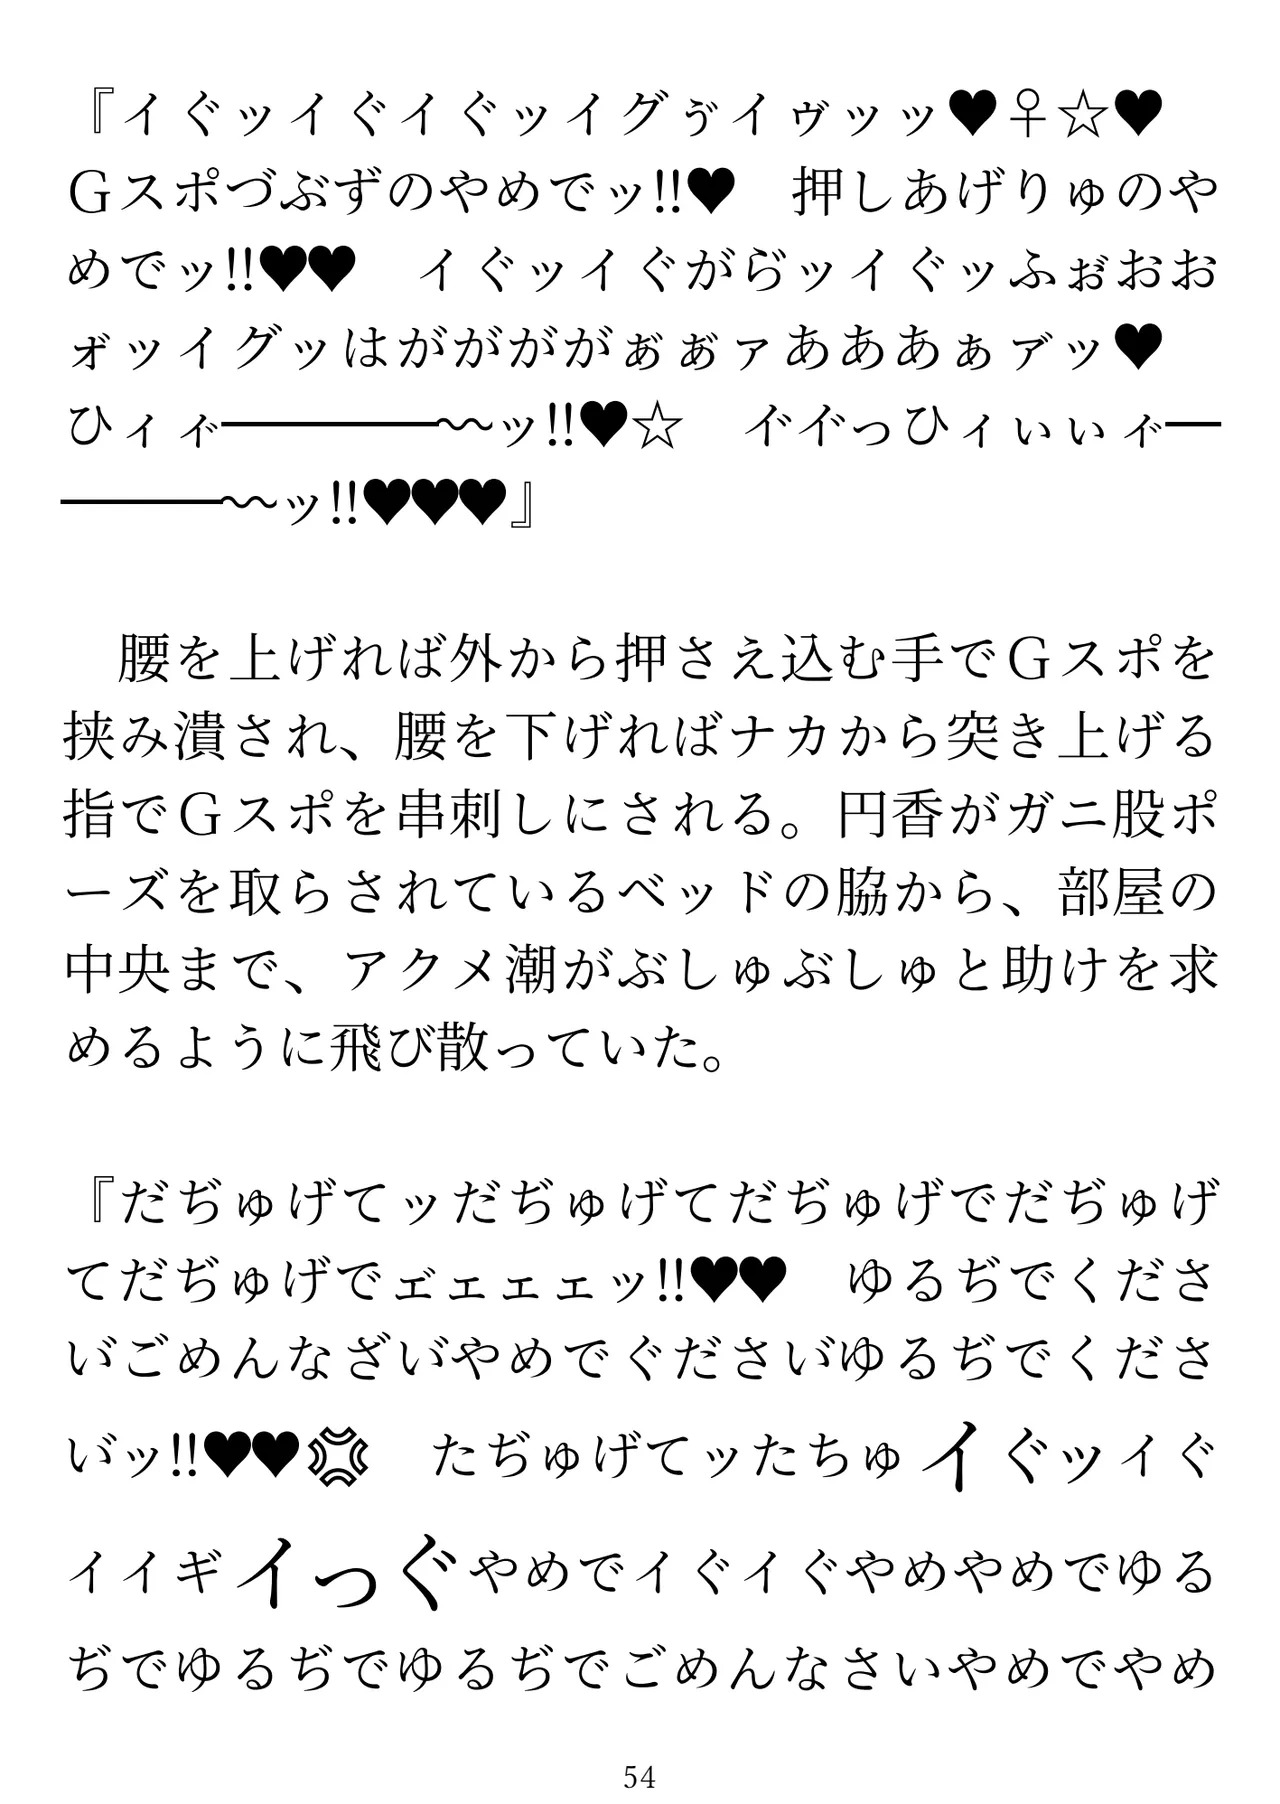 『イぐッイぐイぐッイグぅ゙イヴッッ♥♀☆♥
Ｇスポづぶずのやめでッ!!♥　押しあげりゅのや
めでッ!!♥♥　イぐッイぐがら゙ッイぐッふぉ゙おお
ォ゙ッイグッはががががぁ゙ぁ゙ァあああぁァ゙ッ♥
ひィィ゙――――〜ッ!!♥☆　イ゙イ゙っひィぃぃィ゙―
―――〜ッ!!♥♥♥』
　腰を上げれば外から押さえ込む手でＧスポを
挟み潰され、腰を下げればナカから突き上げる
指でＧスポを串刺しにされる。円香がガニ股ポ
ーズを取らされているベッドの脇から、部屋の
中央まで、アクメ潮がぶしゅぶしゅと助けを求
めるように飛び散っていた。
『だぢゅげてッだぢゅげてだぢゅげでだぢゅげ
てだぢゅげでェ゙ェェェッ!!♥♥　ゆるぢでくださ
い゙ごめんなざい゙やめでぐださい゙ゆるぢでくださ
い゙ッ!!♥♥💢　たぢゅげてッたちゅイぐッイぐ
イイギイっぐやめでイぐイぐやめやめでゆる
ぢでゆるぢでゆるぢでごめんなさいやめでやめ
54